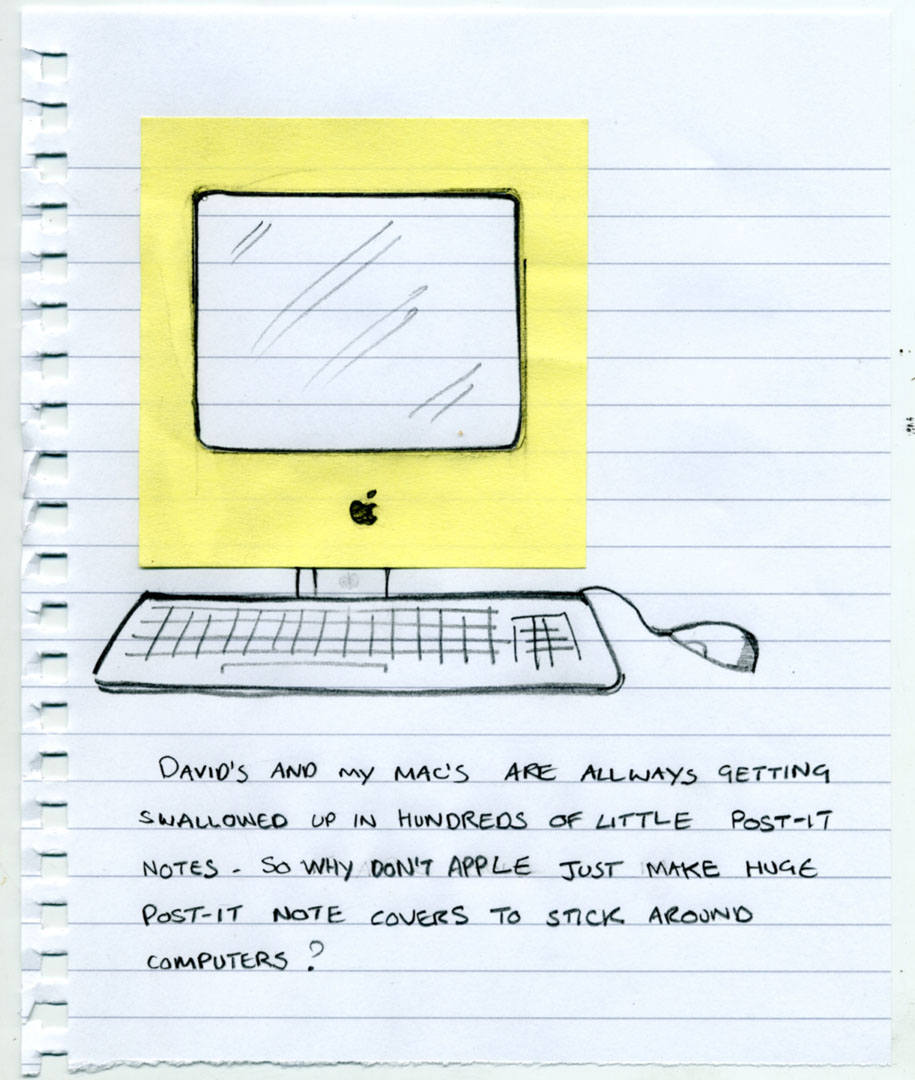 DAVID'S AND MY MAC'S ARE ALLWAYS GETTING
SWALLOWED UP IN HUNDREDS OF LITTLE POST-IT
NOTES. SO WHY DON'T APPLE JUST MAKE HUGE
POST-IT NOTE COVERS TO STICK AROUND
COMPUTERS?